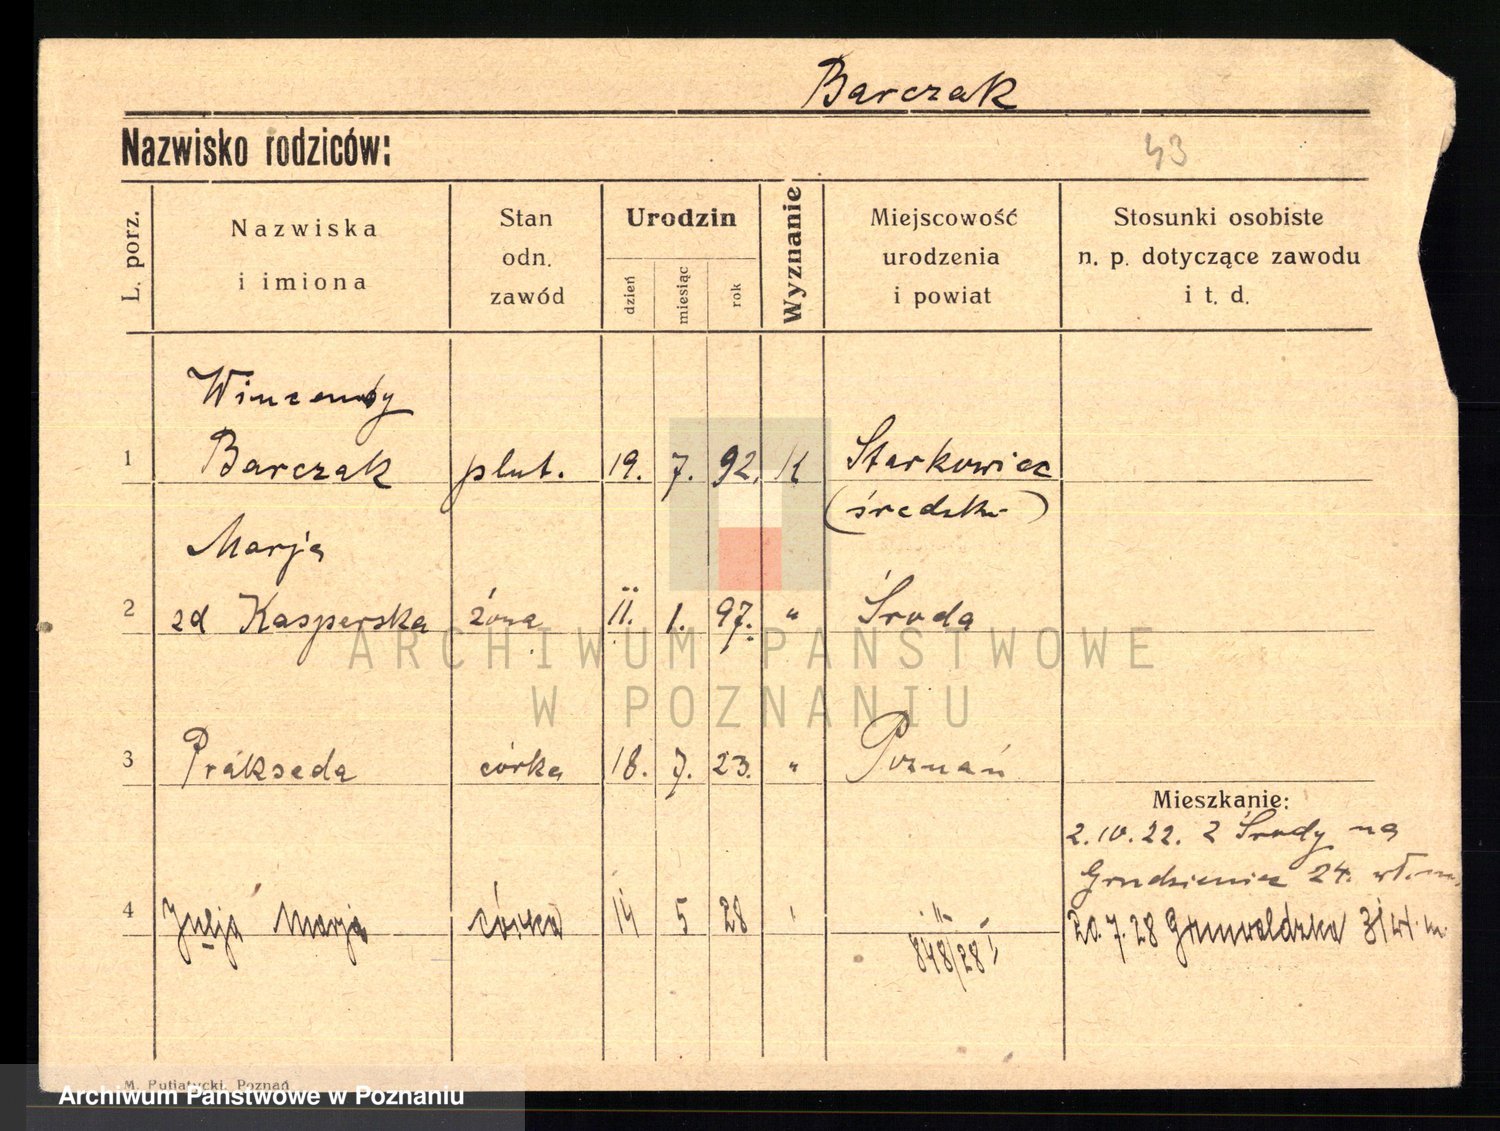 Barczak
Nazwisko rodziców:
43
L. porz.
Nazwiska
i imiona
Stan
odn.
zawód
Urodzin
dzień
miesiąc
rok
Wyznanie
Miejscowość
urodzenia
i powiat
Stosunki osobiste
n. p. dotyczące zawodu
i t. d.
Wincenty
1 Barczak plut. 19. 7. 92. K Starkowiec
(średzki)
Marja
2 zd Kasperska żona 11. 1. 97. " Środa
3 Prakseda córka 18. 7. 23. " Poznań
Mieszkanie:
2.10.22. z Środy na
Grudzieniec 24.
4 Julja Marja córka 14 5 28 " 20.7.28 Grunwaldzka
848/28
ARCHIWUM PAŃSTWOWE
W POZNANIU
M. Putiatycki, Poznań
Archiwum Państwowe w Poznaniu